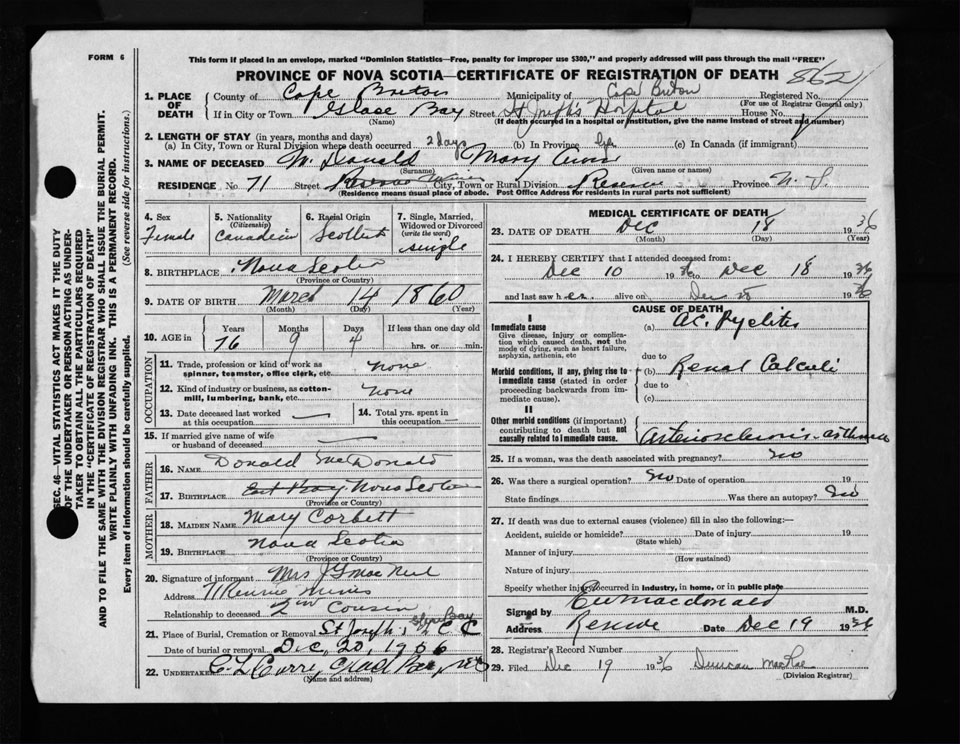 FORM 6
This form if placed in an envelope, marked "Dominion Statistics—Free, penalty for improper use $300," and properly addressed will pass through the mail "FREE"
PROVINCE OF NOVA SCOTIA—CERTIFICATE OF REGISTRATION OF DEATH 862
1. PLACE OF DEATH
County of Cape Breton Municipality of Cape Breton Registered No.
(For use of Registrar General only)
If in City or Town Glace Bay Street St Joseph's Hospital House No.
(Name) (If death occurred in a hospital or institution, give the name instead of street and number)
2. LENGTH OF STAY (in years, months and days)
(a) In City, Town or Rural Division where death occurred 2 days (b) In Province (c) In Canada (if immigrant)
3. NAME OF DECEASED McDonald Mary Ann
(Surname) (Given name or names)
RESIDENCE No 71 Street City, Town or Rural Division Reserve Province N. S.
(Residence means usual place of abode. Post Office Address for residents in rural parts not sufficient)
4. Sex Female
5. Nationality (Citizenship) Canadian
6. Racial Origin Scottish
7. Single, Married, Widowed or Divorced (write the word) single
8. BIRTHPLACE Nova Scotia
(Province or Country)
9. DATE OF BIRTH March 14 1860
(Month) (Day) (Year)
10. AGE in Years 76 Months 9 Days 4 If less than one day old hrs. or min.
OCCUPATION
11. Trade, profession or kind of work as spinner, teamster, office clerk, etc. none
12. Kind of industry or business, as cotton-mill, lumbering, bank, etc. none
13. Date deceased last worked at this occupation —
14. Total yrs. spent in this occupation —
15. If married give name of wife or husband of deceased —
FATHER
16. NAME Donald MacDonald
17. BIRTHPLACE East Bay Nova Scotia
(Province or Country)
MOTHER
18. MAIDEN NAME Mary Corbett
19. BIRTHPLACE Nova Scotia
(Province or Country)
20. Signature of informant Mrs J G MacNeil
Address 71 Mines
Relationship to deceased 2nd Cousin
21. Place of Burial, Cremation or Removal St Joseph's, Glace Bay
Date of burial or removal Dec, 20, 1936
22. UNDERTAKER C. L. Curry, Glace Bay, NS
(Name and address)
MEDICAL CERTIFICATE OF DEATH
23. DATE OF DEATH Dec 18 1936
(Month) (Day) (Year)
24. I HEREBY CERTIFY that I attended deceased from:
Dec 10 1936 to Dec 18 1936
and last saw her alive on Dec 1936
CAUSE OF DEATH
I
Immediate cause
Give disease, injury or complication which caused death, not the mode of dying, such as heart failure, asphyxia, asthenia, etc
(a) Ac. Pyelitis
due to
Morbid conditions, if any, giving rise to immediate cause (stated in order proceeding backwards from immediate).
(b) Renal Calculi
due to
(c)
II
Other morbid conditions (if important) contributing to death but not causally related to immediate cause.
Arteriosclerosis - asthma
25. If a woman, was the death associated with pregnancy? No
26. Was there a surgical operation? No Date of operation 19
State findings Was there an autopsy? No
27. If death was due to external causes (violence) fill in also the following:—
Accident, suicide or homicide? Date of injury 19
(State which)
Manner of injury
(How sustained)
Nature of injury
Specify whether injury occurred in industry, in home, or in public place
Signed by Macdonald M.D.
Address Reserve Date Dec 19 1936
28. Registrar's Record Number
29. Filed Dec 19 1936 Duncan MacRae
(Division Registrar)
SEC. 46—VITAL STATISTICS ACT MAKES IT THE DUTY
OF THE UNDERTAKER OR PERSON ACTING AS UNDER-
TAKER TO OBTAIN ALL THE PARTICULARS REQUIRED
IN THE "CERTIFICATE OF REGISTRATION OF DEATH"
AND TO FILE THE SAME WITH THE DIVISION REGISTRAR WHO SHALL ISSUE THE BURIAL PERMIT.
WRITE PLAINLY WITH UNFADING INK. THIS IS A PERMANENT RECORD.
Every item of information should be carefully supplied. (See reverse side for instructions.)